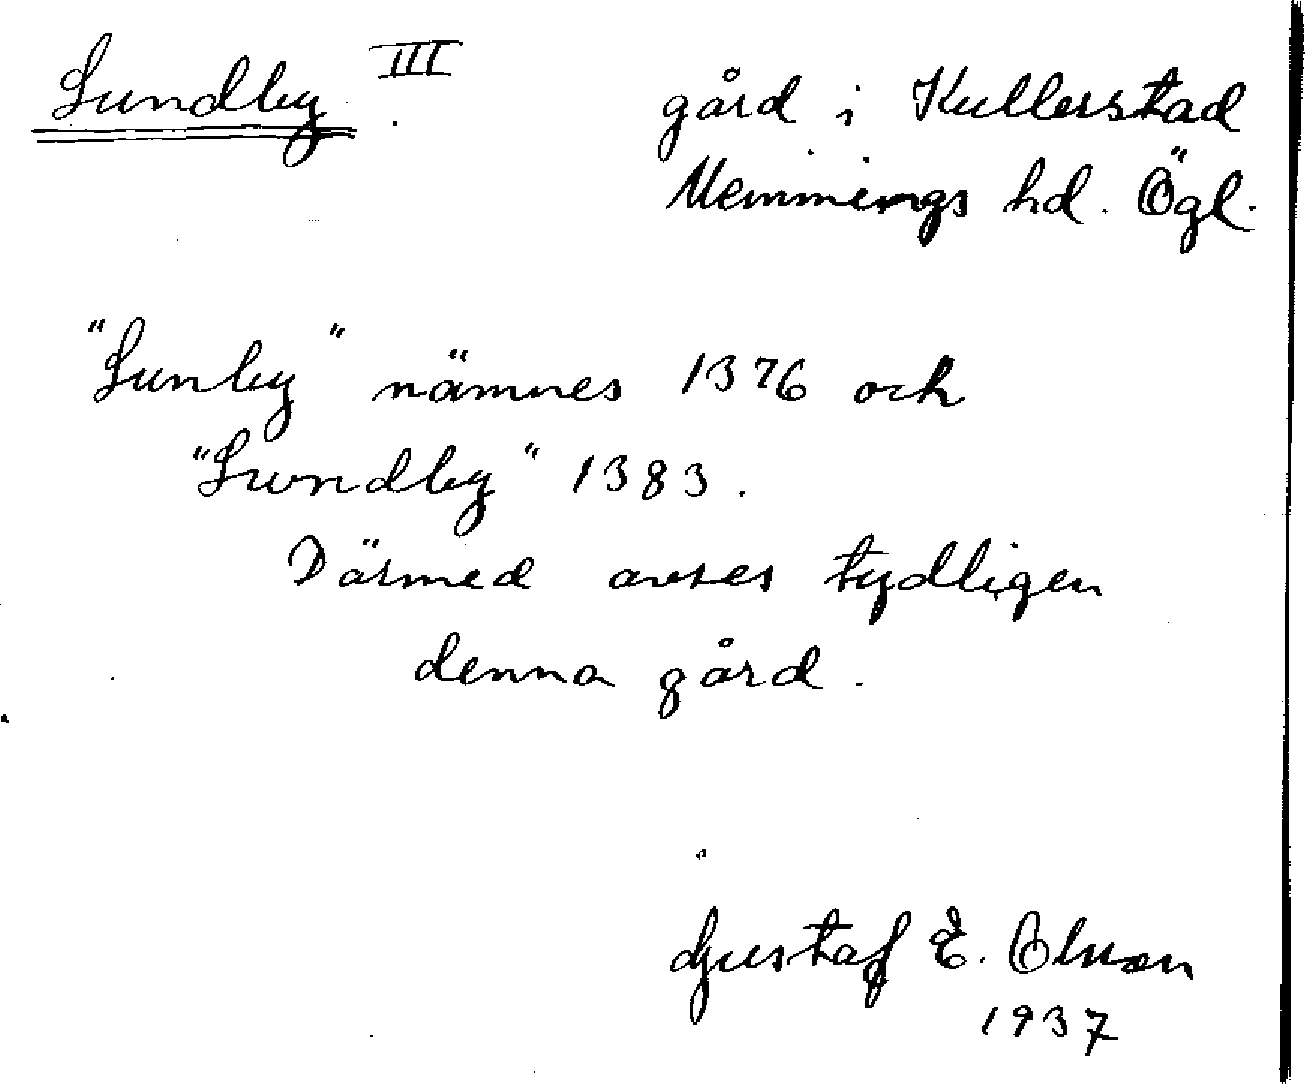 Lundby III. gård i Kullerstad
Memmings hd. Ögl.
"Lunby" nämnes 1376 och
"Lundby" 1383.
Därmed avses tydligen
denna gård.
Gustaf E. Olsson
1937